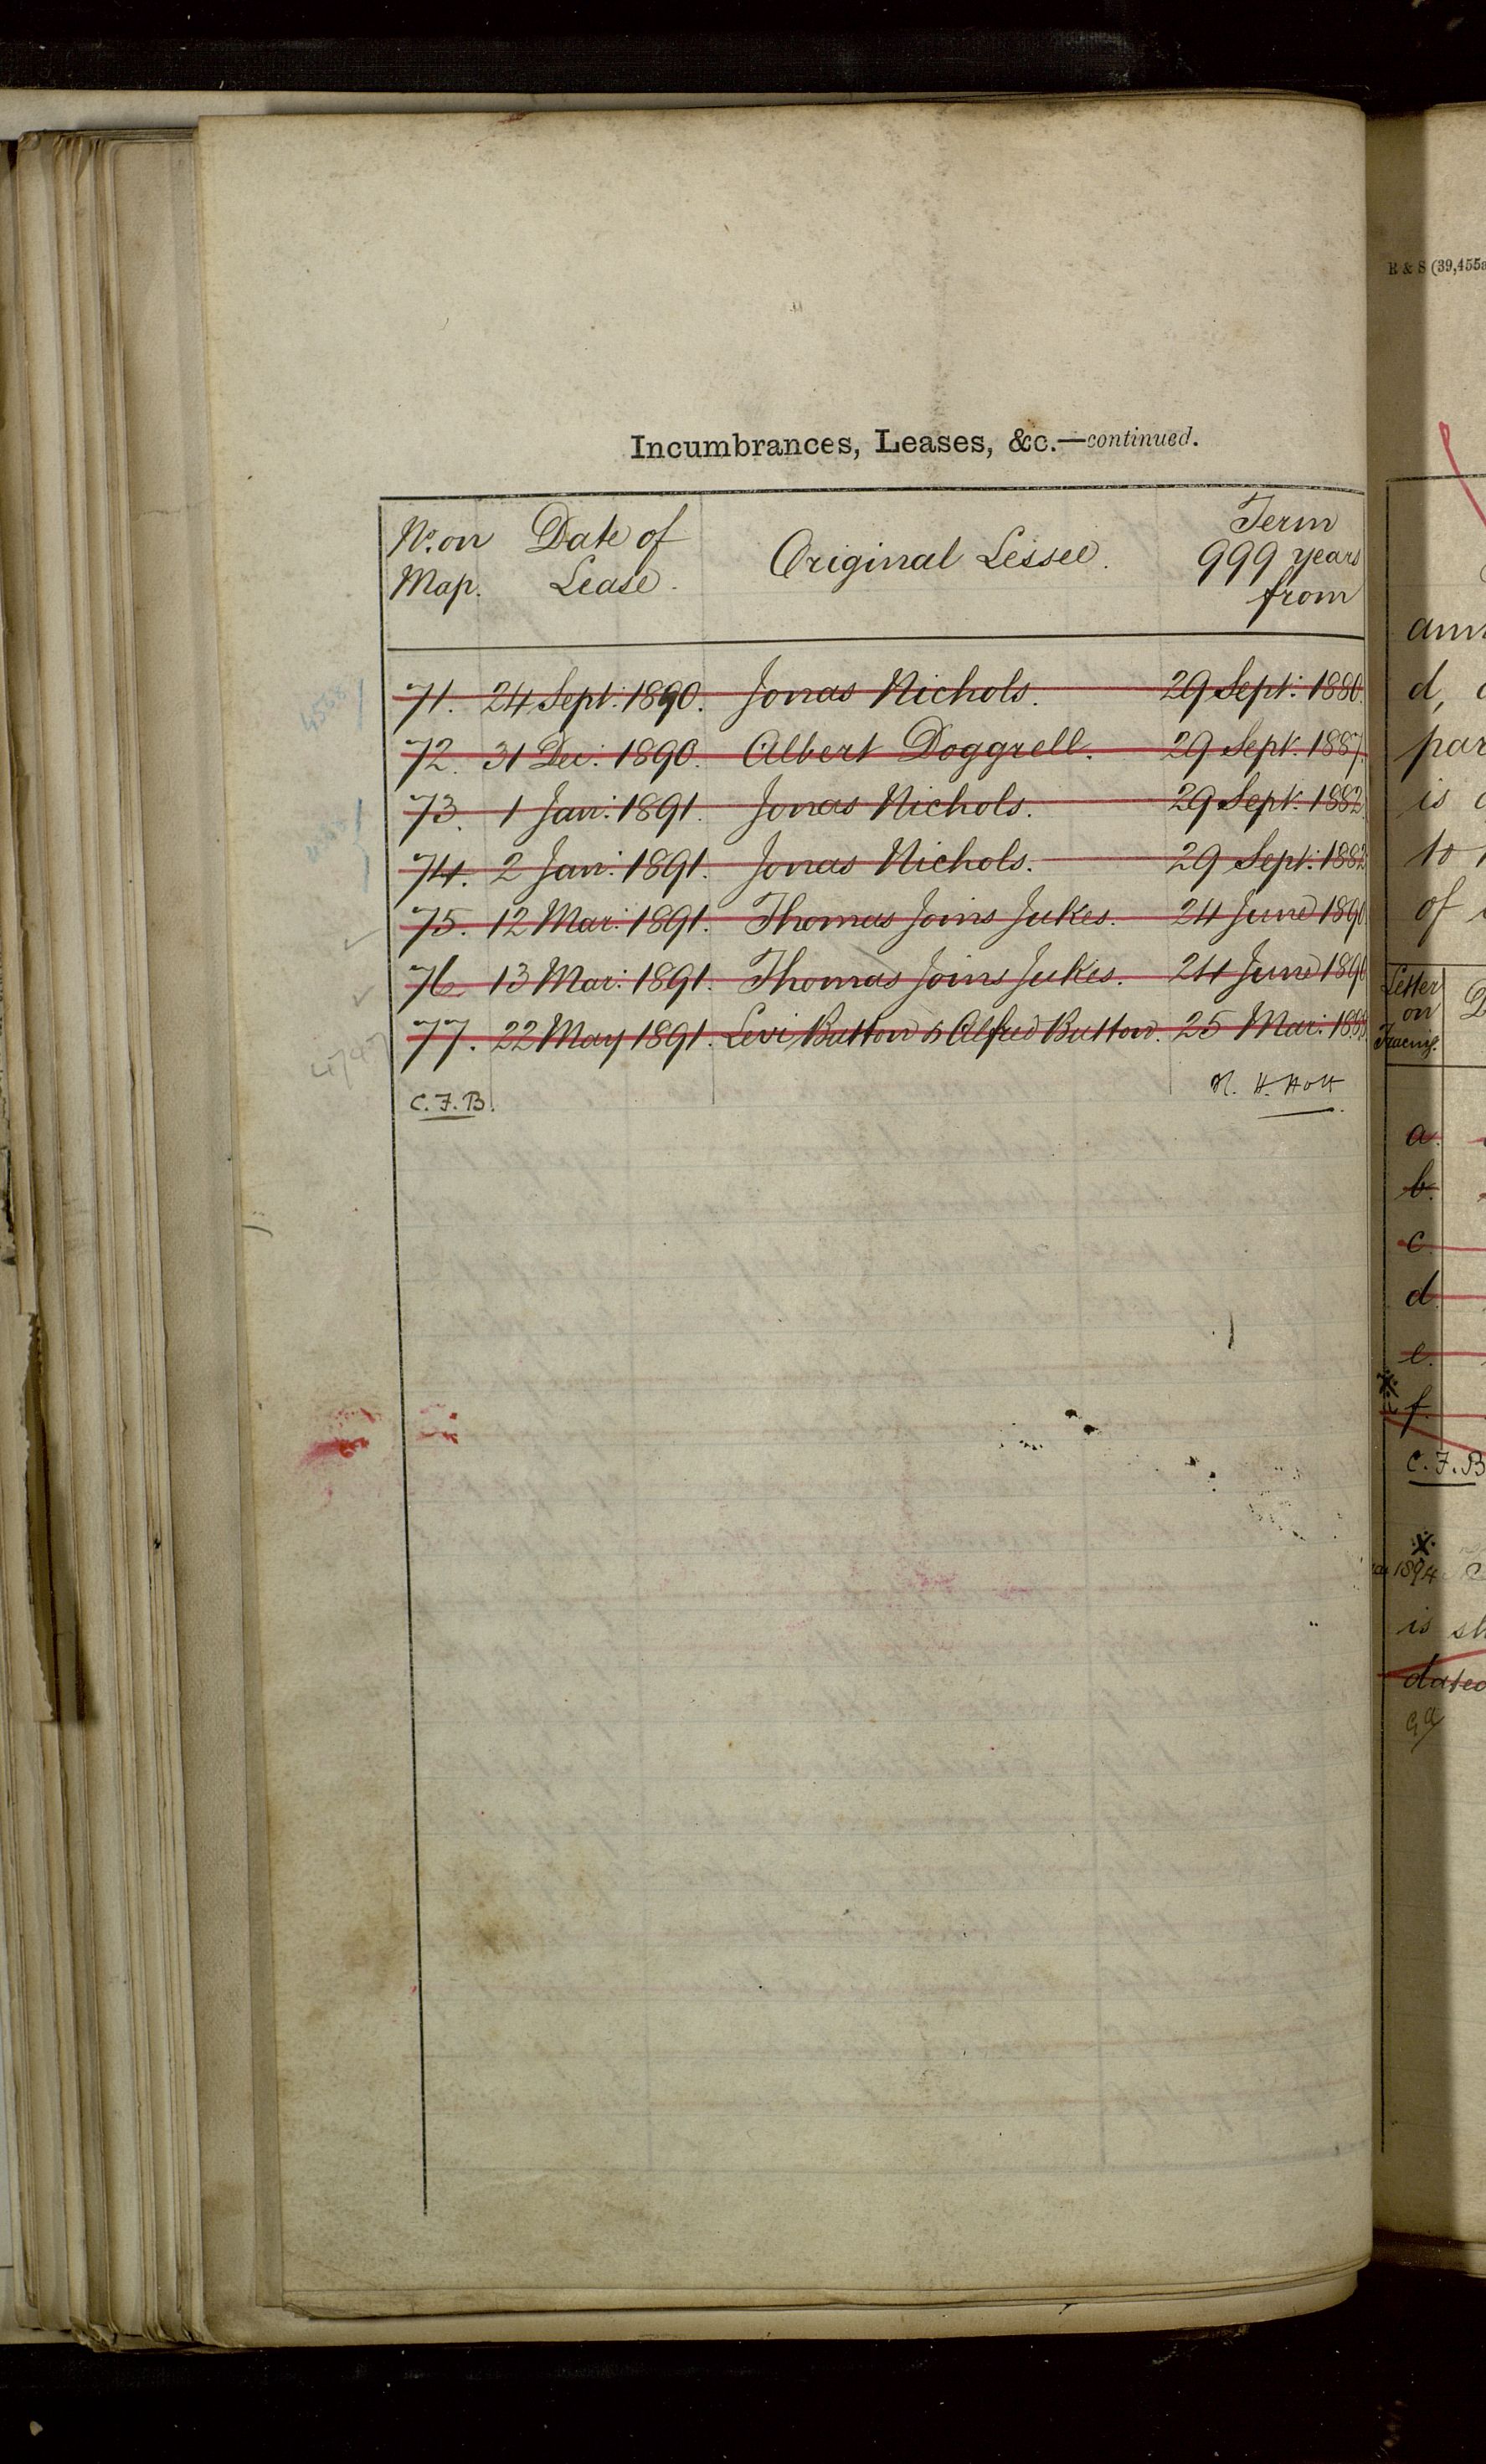 Incumbrances, Leases, &c.—continued.
No. on Map. Date of Lease. Original Lessee. Term 999 years from
71. 24 Sept: 1890. Jonas Nichols. 29 Sept: 1880.
72. 31 Dec: 1890. Albert Doggrell. 29 Sept: 1887.
73. 1 Jan: 1891. Jonas Nichols. 29 Sept: 1882.
74. 2 Jan: 1891. Jonas Nichols. 29 Sept: 1882
75. 12 Mar: 1891. Thomas Joins Jukes. 24 June 1890
76. 13 Mar: 1891. Thomas Joins Jukes. 24 June 1890
77. 22 May 1891. Levi Button & Alfred Button. 25 Mar:
C.F.B. H. Holt
R & S (39,455a
d,
par
is
to
of
Letter
on
Tracing.
a.
b.
c.
d.
e.
f.
C.F.B
1894
is sh
dated